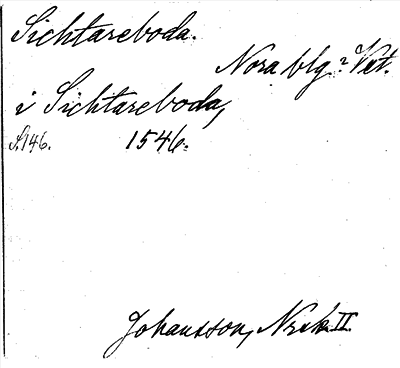 Sichtareboda.
Nora blg. Vet.
i Sichtareboda,
S. 146. 1546.
Johansson, Nrk. II.